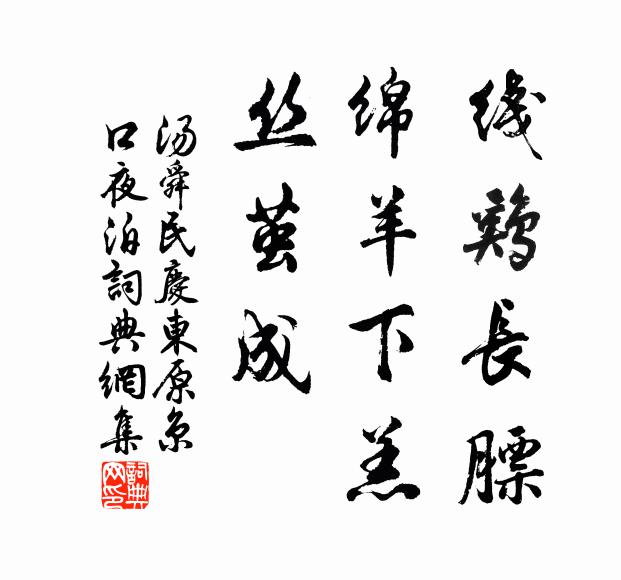 綫鷄長膘
绵羊下羔
丝茧成
汤舜民慶東原京
口夜泊詞典網集
詞典
网印